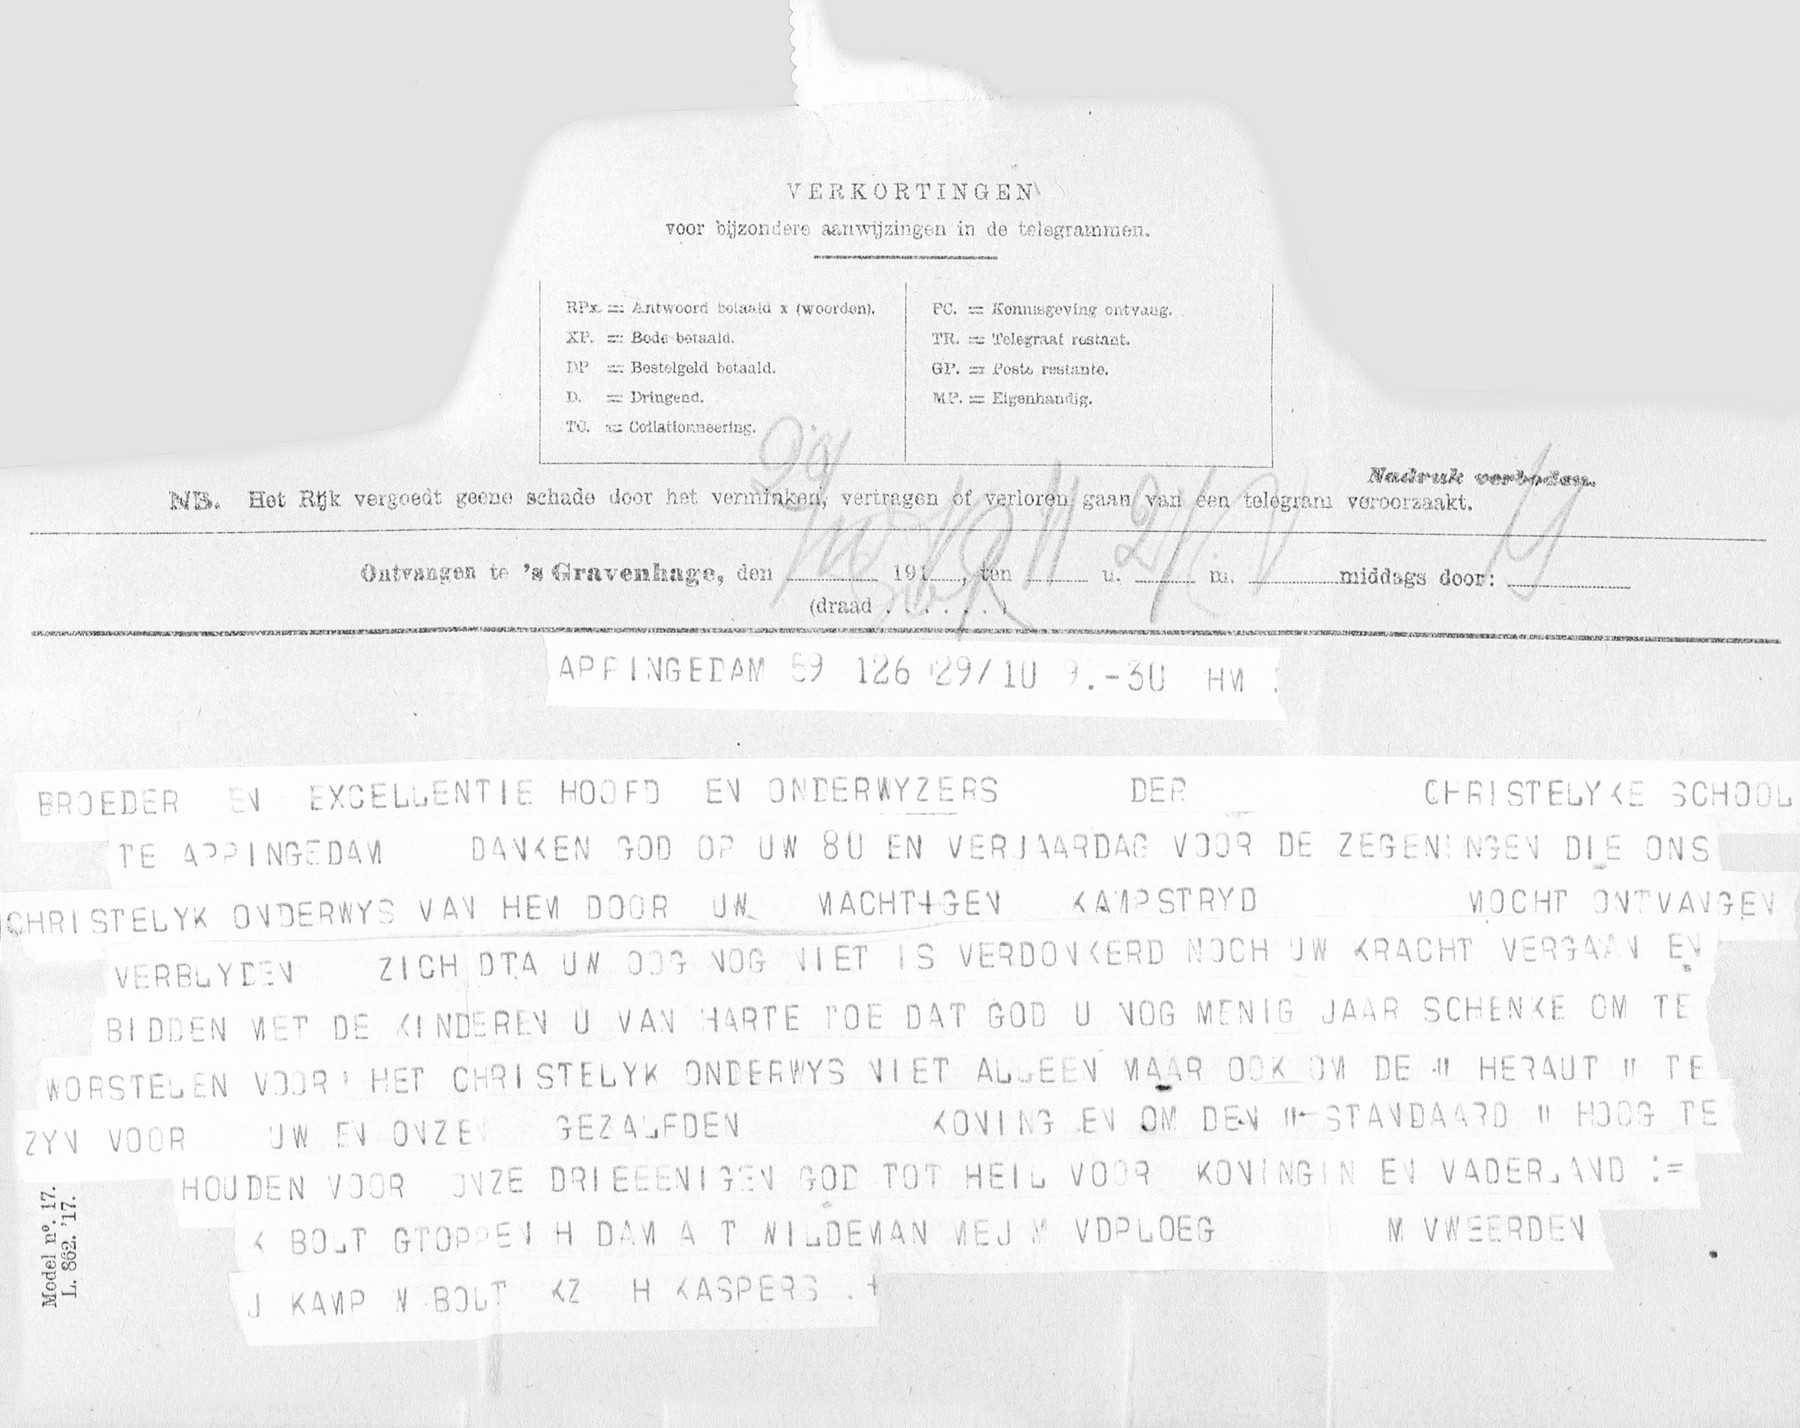 VERKORTINGEN
voor bijzondere aanwijzingen in de telegrammen.
RPx. = Antwoord betaald x (woorden).
XP. = Bode betaald.
DP = Bestelgeld betaald.
D. = Dringend.
TC. = Collationneering.
PC. = Kennisgeving ontvang.
TR. = Telegraaf restant.
GP. = Poste restante.
MP. = Eigenhandig.
Nadruk verboden.
NB. Het Rijk vergoedt geene schade door het verminken, vertragen of verloren gaan van een telegram veroorzaakt.
Ontvangen te 's Gravenhage, den 191 , ten u. m. middags door:
(draad . . . . . .)
APPINGEDAM 59 126 29/10 9.-30 HM :
BROEDER EN EXCELLENTIE HOOFD EN ONDERWYZERS DER CHRISTELYKE SCHOOL
TE APPINGEDAM DANKEN GOD OP UW 80 EN VERJAARDAG VOOR DE ZEGENINGEN DIE ONS
CHRISTELYK ONDERWYS VAN HEM DOOR UW MACHTIGEN KAMPSTRYD MOCHT ONTVANGEN
VERBLYDEN ZICH DTA UW OOG NOG NIET IS VERDONKERD NOCH UW KRACHT VERGAAN EN
BIDDEN MET DE KINDEREN U VAN HARTE TOE DAT GOD U NOG MENIG JAAR SCHENKE OM TE
WORSTELEN VOOR HET CHRISTELYK ONDERWYS NIET ALLEEN MAAR OOK OM DE " HERAUT " TE
ZYN VOOR UW EN ONZEN GEZALFDEN KONING EN OM DEN " STANDAARD " HOOG TE
HOUDEN VOOR ONZE DRIEEENIGEN GOD TOT HEIL VOOR KONINGIN EN VADERLAND :=
K BOLT GTOPPEN H DAM A T WILDEMAN MEJ M VDPLOEG M VWEERDEN
J KAMP W BOLT KZ H KASPERS . +
Model nº. 17.
L. 862. '17.